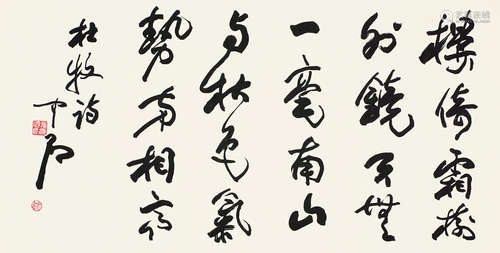 樓倚霜樹
外鏡天無
一毫南山
与秋色氣
勢兩相高
杜牧诗
中石